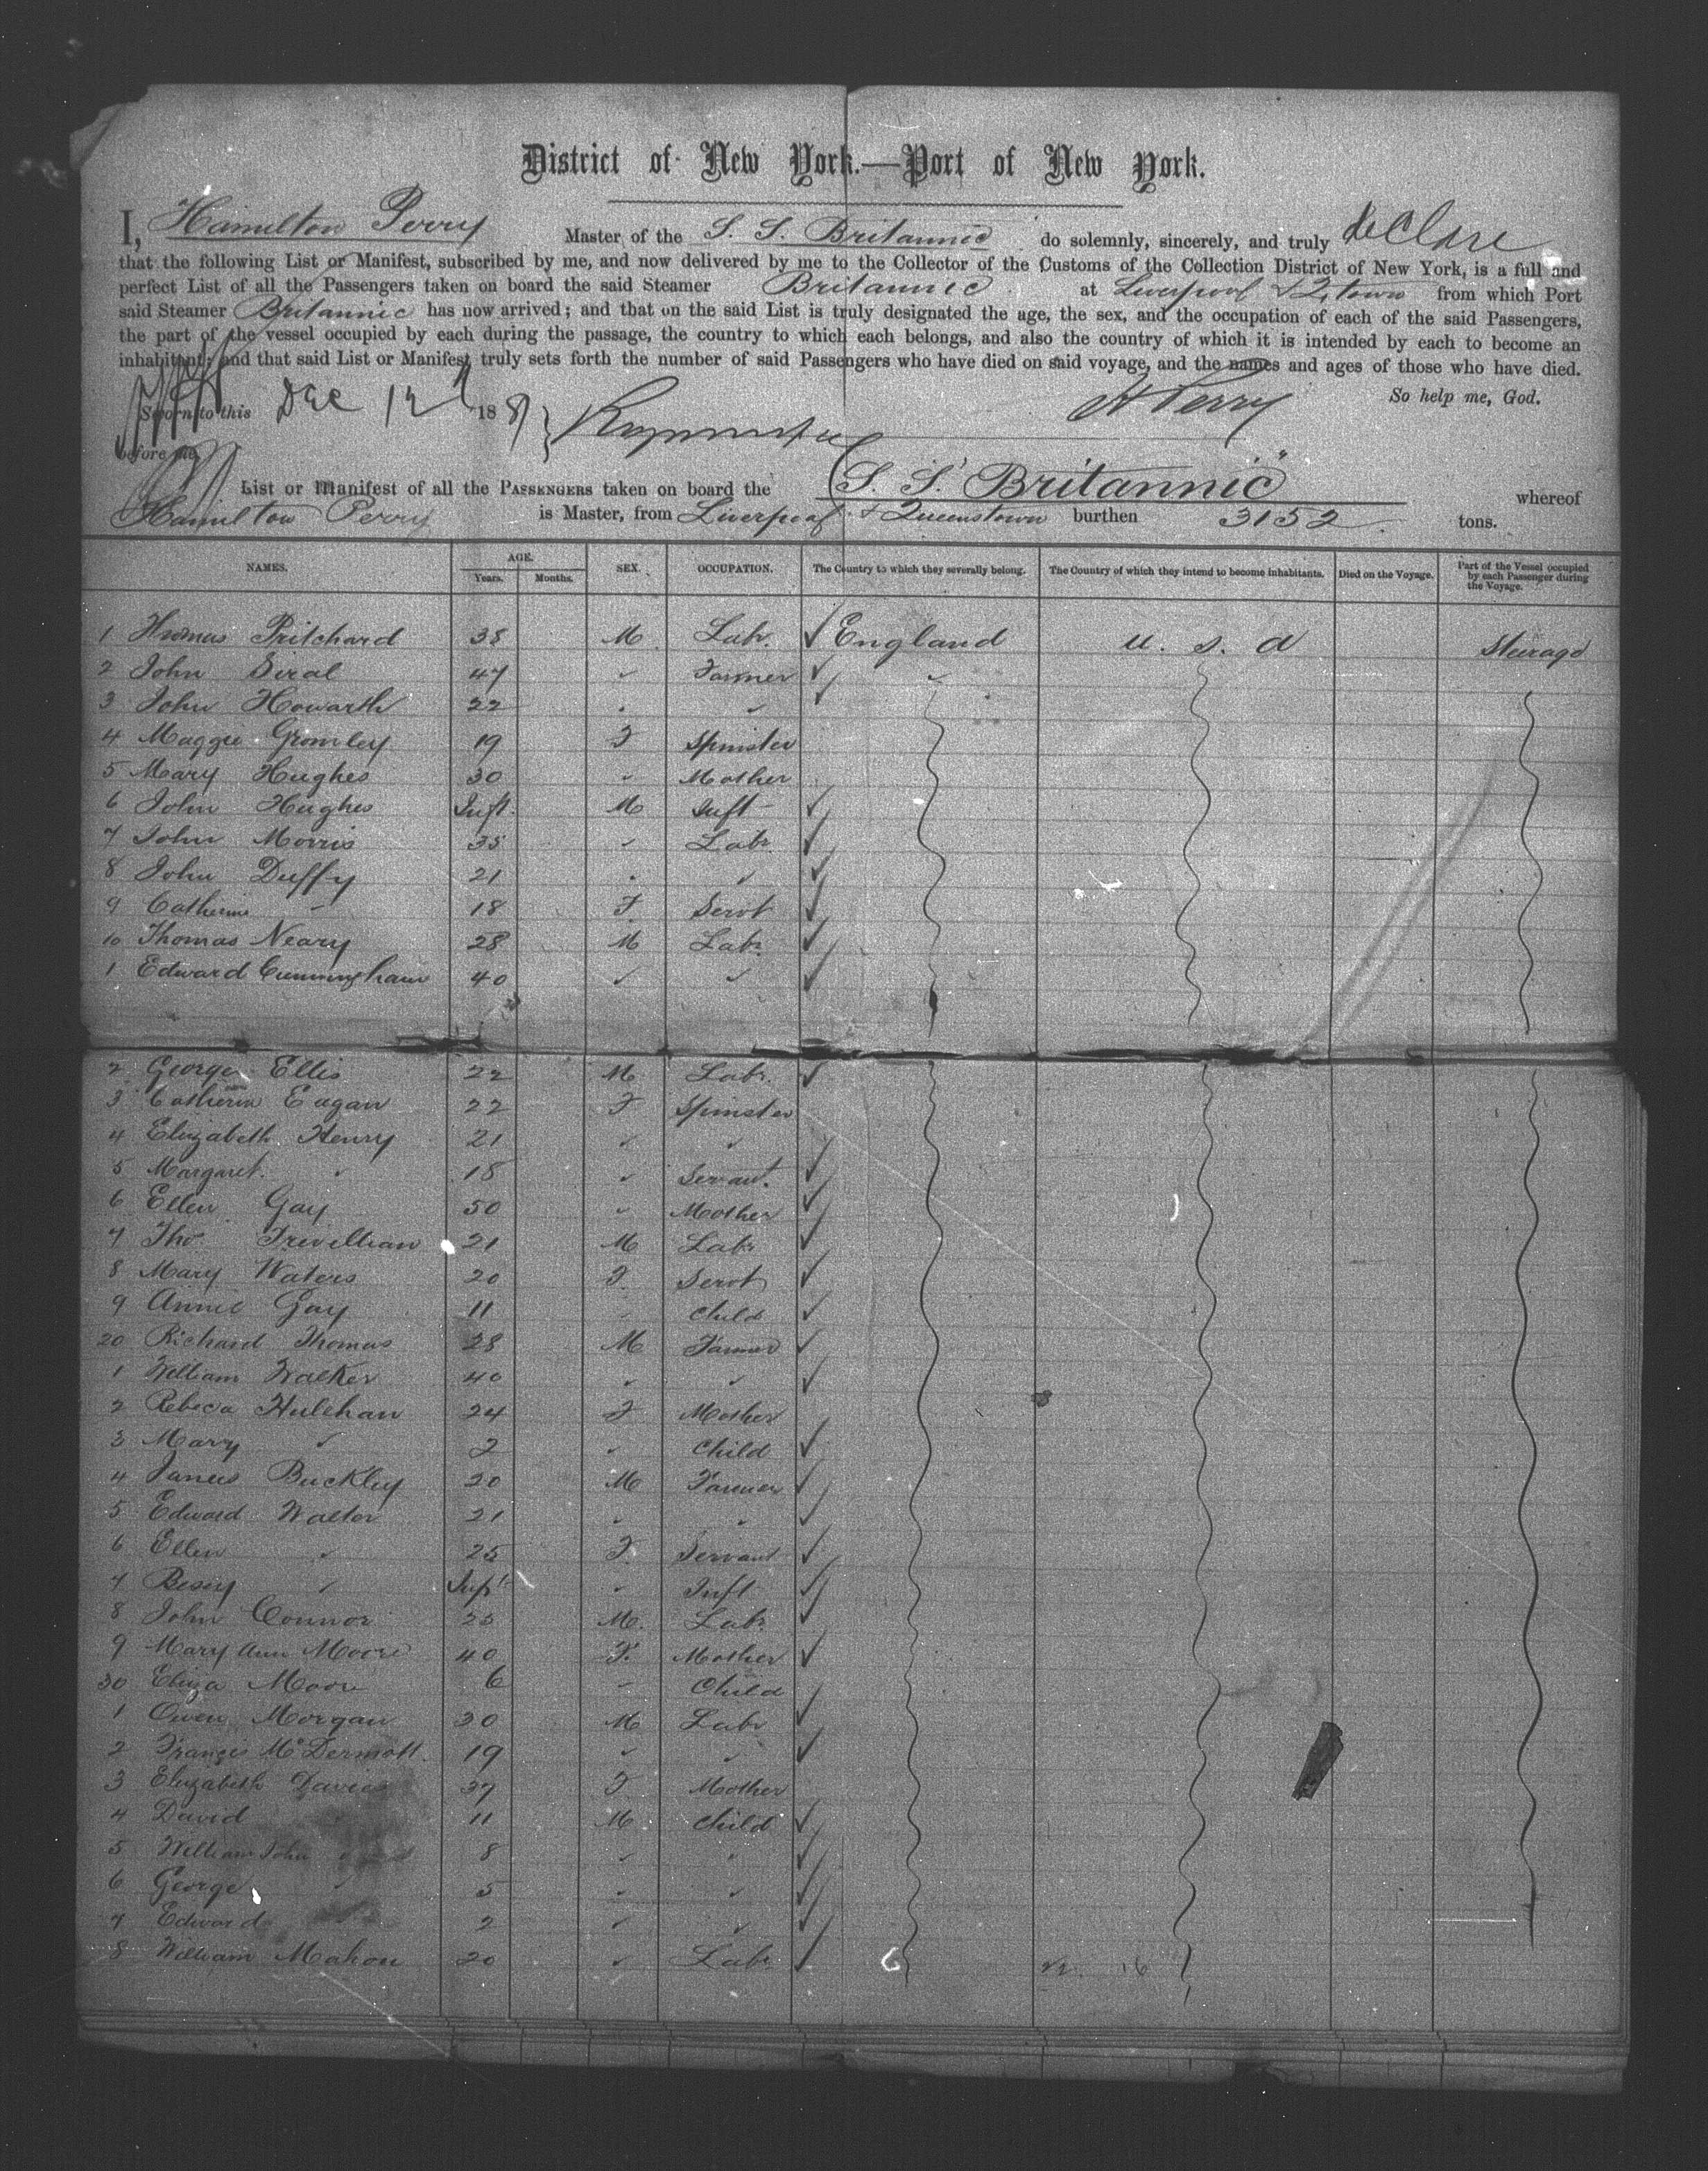 District of New York.—Port of New York.
I, Hamilton Perry Master of the S. S. Britannic do solemnly, sincerely, and truly declare
that the following List or Manifest, subscribed by me, and now delivered by me to the Collector of the Customs of the Collection District of New York, is a full and
perfect List of all the Passengers taken on board the said Steamer Britannic at Liverpool & Q. town from which Port
said Steamer Britannic has now arrived; and that on the said List is truly designated the age, the sex, and the occupation of each of the said Passengers,
the part of the vessel occupied by each during the passage, the country to which each belongs, and also the country of which it is intended by each to become an
inhabitant; and that said List or Manifest truly sets forth the number of said Passengers who have died on said voyage, and the names and ages of those who have died.
So help me, God.
Sworn to this Dec 12 188 H Perry
before me
List or Manifest of all the PASSENGERS taken on board the S. S. Britannic whereof
Hamilton Perry is Master, from Liverpool & Queenstown burthen 3152 tons.
NAMES. AGE. Years. Months. SEX. OCCUPATION. The Country to which they severally belong. The Country of which they intend to become inhabitants. Died on the Voyage. Part of the Vessel occupied by each Passenger during the Voyage.
1 Thomas Pritchard 38 M Labr. ✓ England U. S. A Steerage
2 John Siral 47 " Farmer ✓ "
3 John Howarth 22 " " ✓
4 Maggie Gromley 19 F Spinster
5 Mary Hughes 30 " Mother
6 John Hughes Inft. M Inft ✓
7 John Morris 35 " Labr ✓
8 John Duffy 21 " " ✓
9 Catherine " 18 F. Servt ✓
10 Thomas Neary 28 M Labr ✓
1 Edward Cunningham 40 " " ✓
2 George Ellis 22 M Labr. ✓
3 Catherin Eagan 22 F Spinster
4 Elizabeth Henry 21 " "
5 Margaret " 18 " Servant. ✓
6 Ellen Gay 50 " Mother ✓
7 Tho Trevillian 21 M Labr ✓
8 Mary Waters 20 F Servt ✓
9 Annie Gay 11 " Child ✓
20 Richard Thomas 28 M Farmer ✓
1 William Walker 40 " " ✓
2 Rebeca Hulehan 24 F Mother
3 Mary " 2 " Child ✓
4 James Buckley 20 M Farmer ✓
5 Edward Walter 21 " " ✓
6 Ellen " 25 F. Servant ✓
7 Besey " Inft " Inft ✓
8 John Connor 25 M. Labr. ✓
9 Mary Ann Moore 40 F. Mother ✓
30 Eliza Moore 6 " Child
1 Owen Morgan 30 M Labr ✓
2 Francis McDermott. 19 " " ✓
3 Elizabeth Davies 37 F Mother
4 David " 11 M Child ✓
5 William John " 8 " " ✓
6 George " 5 " " ✓
7 Edward 2 " " ✓
8 William Mahon 20 " Labr ✓